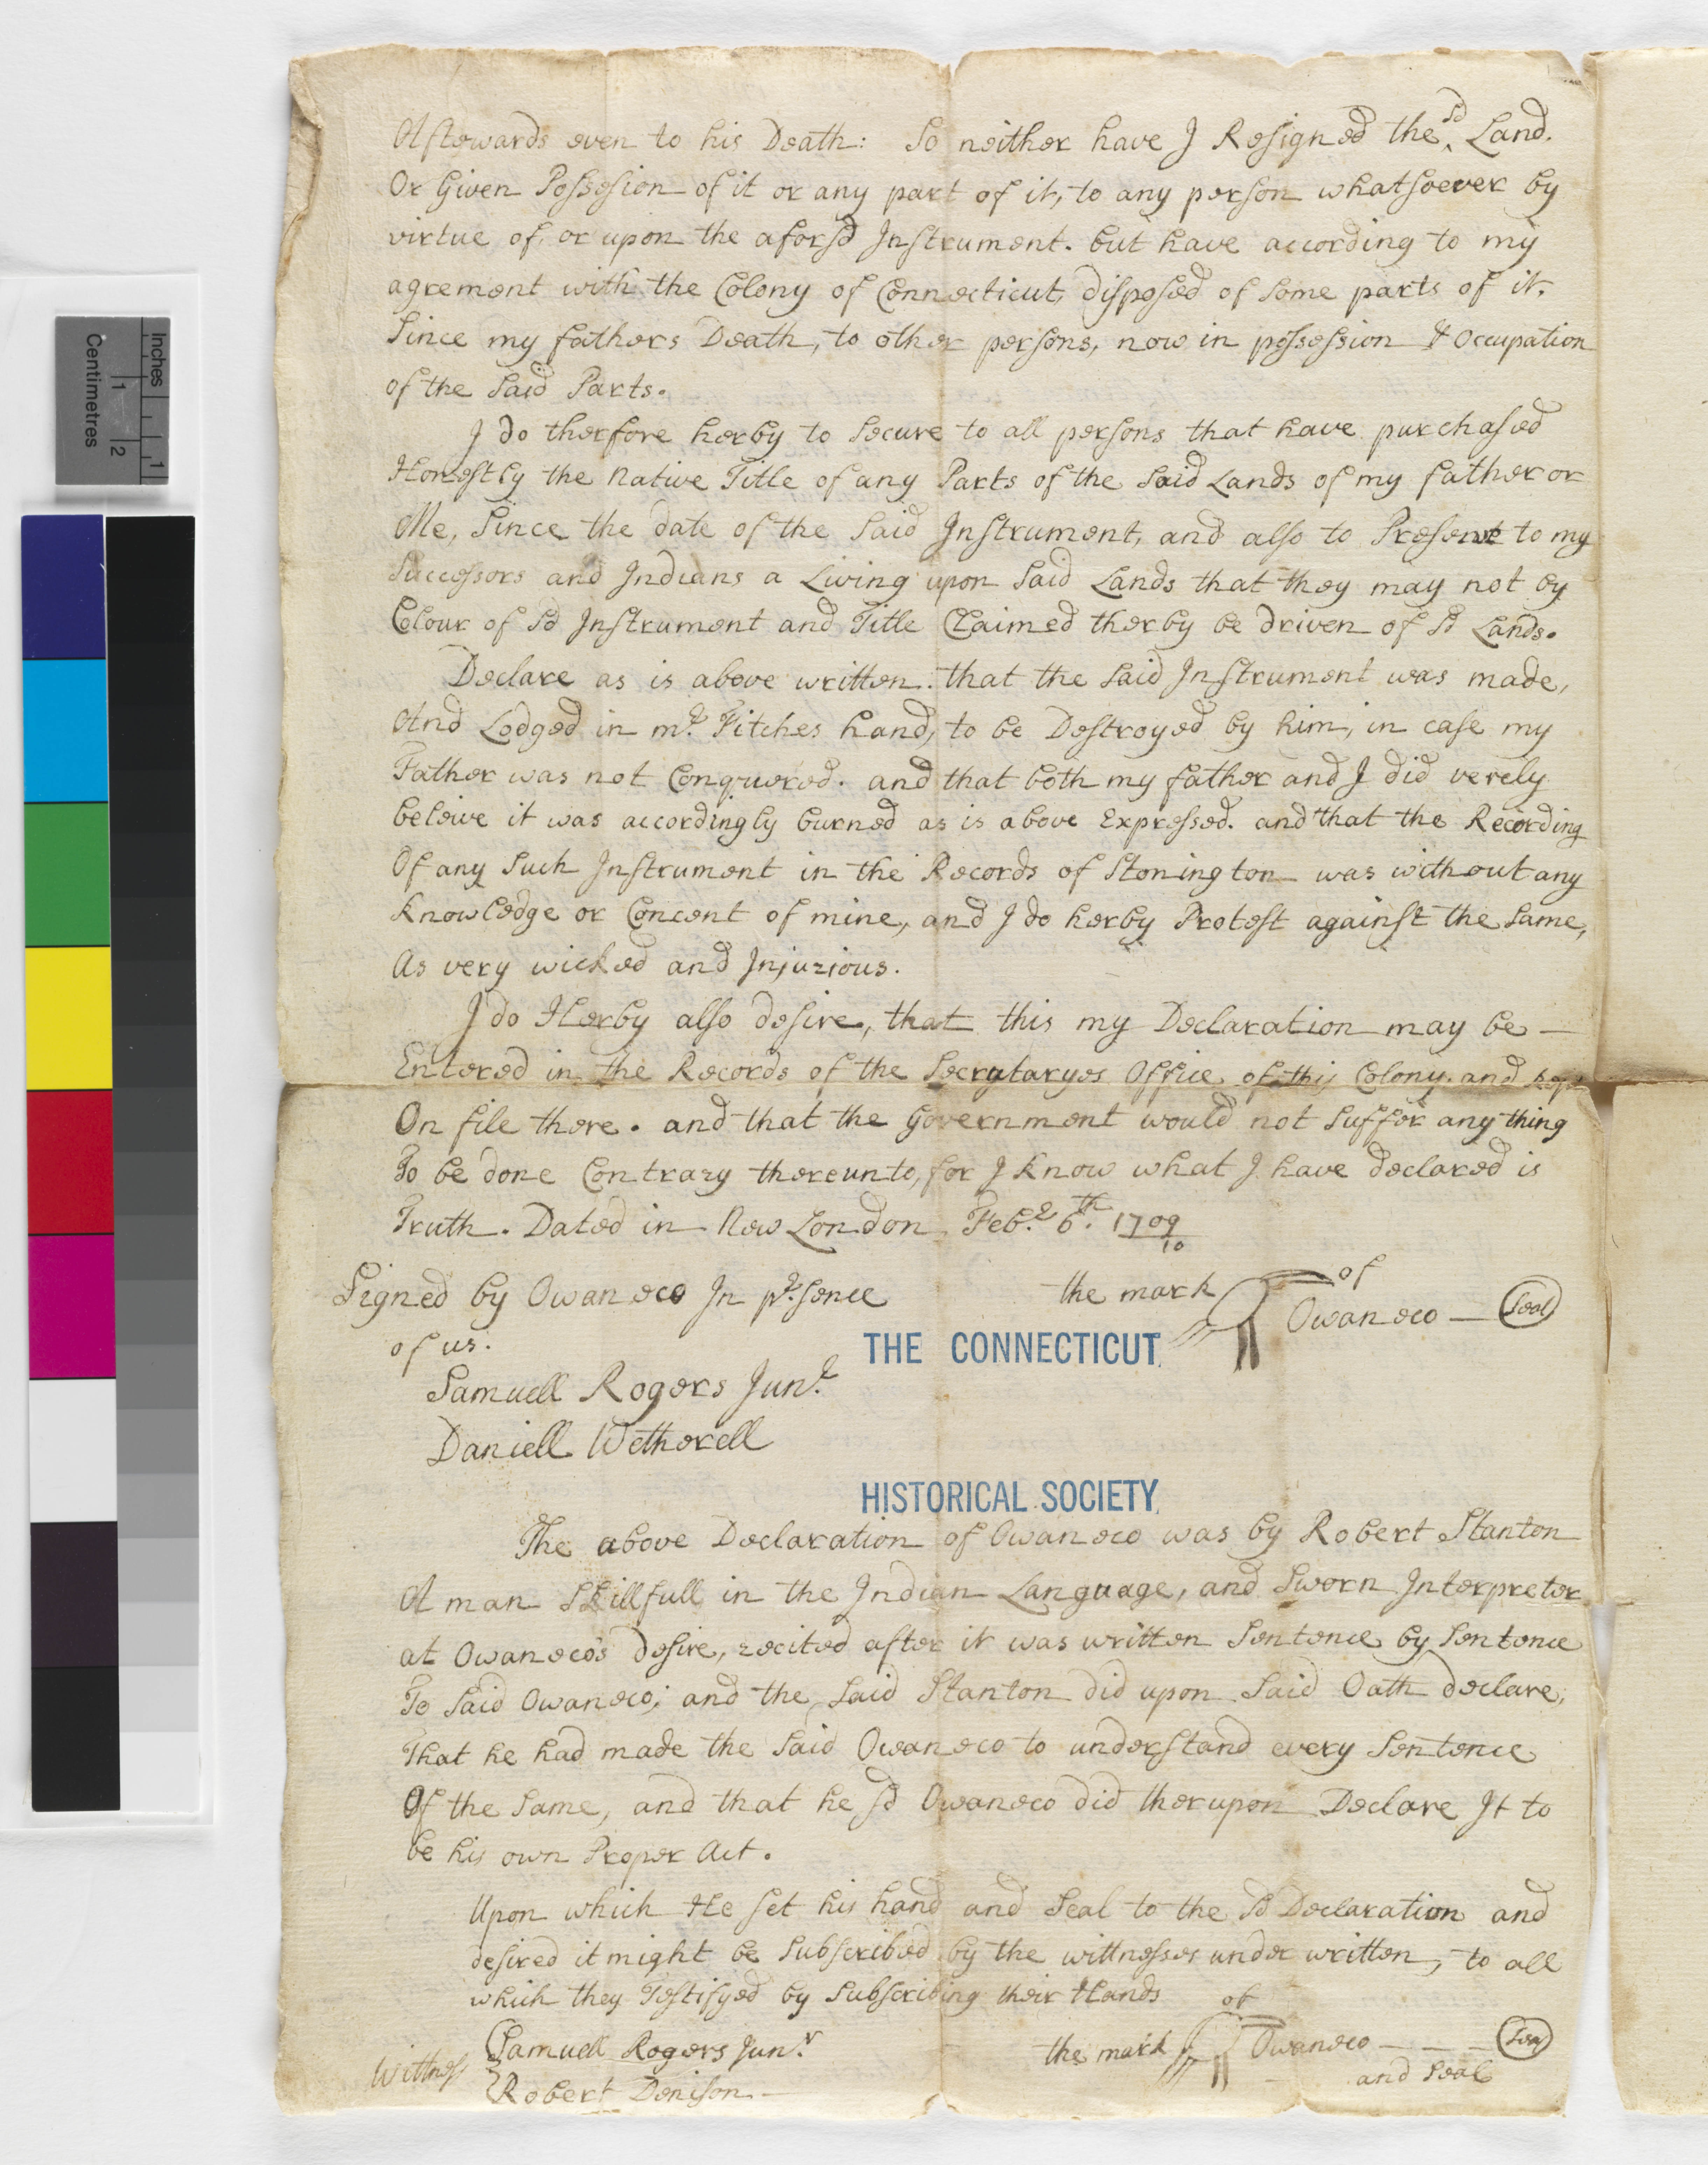 Afterwards even to his Death: So neither have I Resigned the sd Land.
Or Given Possesion of it or any part of it, to any person whatsoever by
virtue of, or upon the aforsd Instrument. but have according to my
agrement with the Colony of Connecticut, disposed of some parts of it.
Since my fathers Death, to other persons, now in possession & Occupation
of the said Parts.
I do therfore herby to secure to all persons that have purchased
Honestly the Native Title of any Parts of the said Lands of my father or
Me, Since the date of the said Instrument, and also to to my
Successors and Indians a Living upon said Lands that they may not by
Colour of sd Instrument and Title Claimed therby be driven of sd Lands.
Declare as is above written. that the said Instrument was made,
And Lodged in mr. Fitches hand, to be Destroyed by him, in case my
Father was not Conquered. and that both my father and I did verely
beleive it was accordingly burned as is above Expressed. and that the Recording
Of any Such Instrument in the Records of Stonington was without any
knowledge or Concent of mine, and I do herby Protest against the same,
As very wicked and Injurious.
I do Herby also desire, that this my Declaration may be —
Entered in the Records of the Secrutaryes Office of this Colony. and kept
On file there. and that the Government would not suffer any thing
To be done Contrary thereunto, for I know what I have declared is
Truth. Dated in New London Feb.e 6th. 1709
10
Signed by Owaneco In pr.sence
of us.
the mark of
Owaneco — Seal
THE CONNECTICUT
Samuell Rogers Junr.
Daniell Wetherell
HISTORICAL SOCIETY
The above Declaration of Owaneco was by Robert Stanton
A man Skillfull in the Indian Language, and Sworn Interpreter
at Owaneco's desire, recited after it was written Sentence by Sentence
To said Owaneco; and the said Stanton did upon said Oath declare,
That he had made the said Owaneco to understand every Sentence
Of the Same, and that he sd Owaneco did therupon Declare It to
be his own Proper Act.
Upon which He set his hand and Seal to the sd Declaration and
desired it might be Subscribed by the wittnesses under written, to all
which they Testifyed by Subscribing their Hands
Wittness
Samuell Rogers Junr.
Robert Denison —
the mark of Owaneco — — — Seal
and Seal
Inches
1
Centimetres
1 2